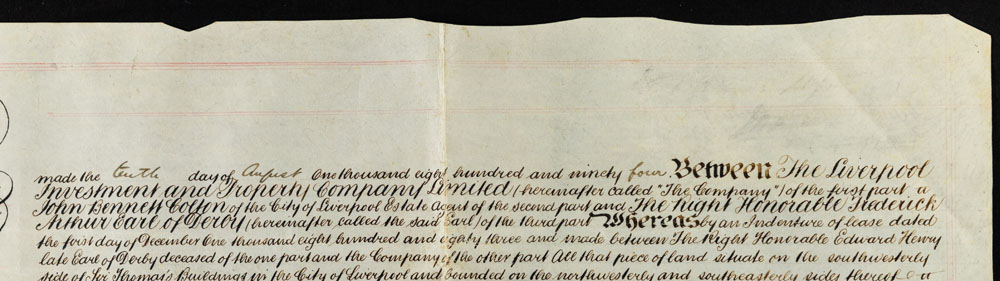 made the tenth day of August One thousand eight hundred and ninety four Between The Liverpool
Investment and Property Company Limited (hereinafter called "The Company") of the first part
John Bennett Colton of the City of Liverpool Estate Agent of the second part and The Right Honorable Frederick
Arthur Earl of Derby (hereinafter called the said Earl) of the third part Whereas by an Indenture of Lease dated
the first day of December One thousand eight hundred and eighty three and made between The Right Honorable Edward Henry
late Earl of Derby deceased of the one part and the Company of the other part All that piece of land situate on the southwesterly
side of Sir Thomas's Buildings in the City of Liverpool and bounded on the northwesterly and southeasterly sides thereof